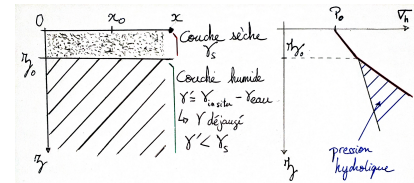 0
x₀
x
Couche sèche
γs
z₀
Couche humide
γ' = γinsitu - γeau
↳ γ déjaugé
γ' < γs
z
P₀
σh
z₀
pression
hydrolique
z